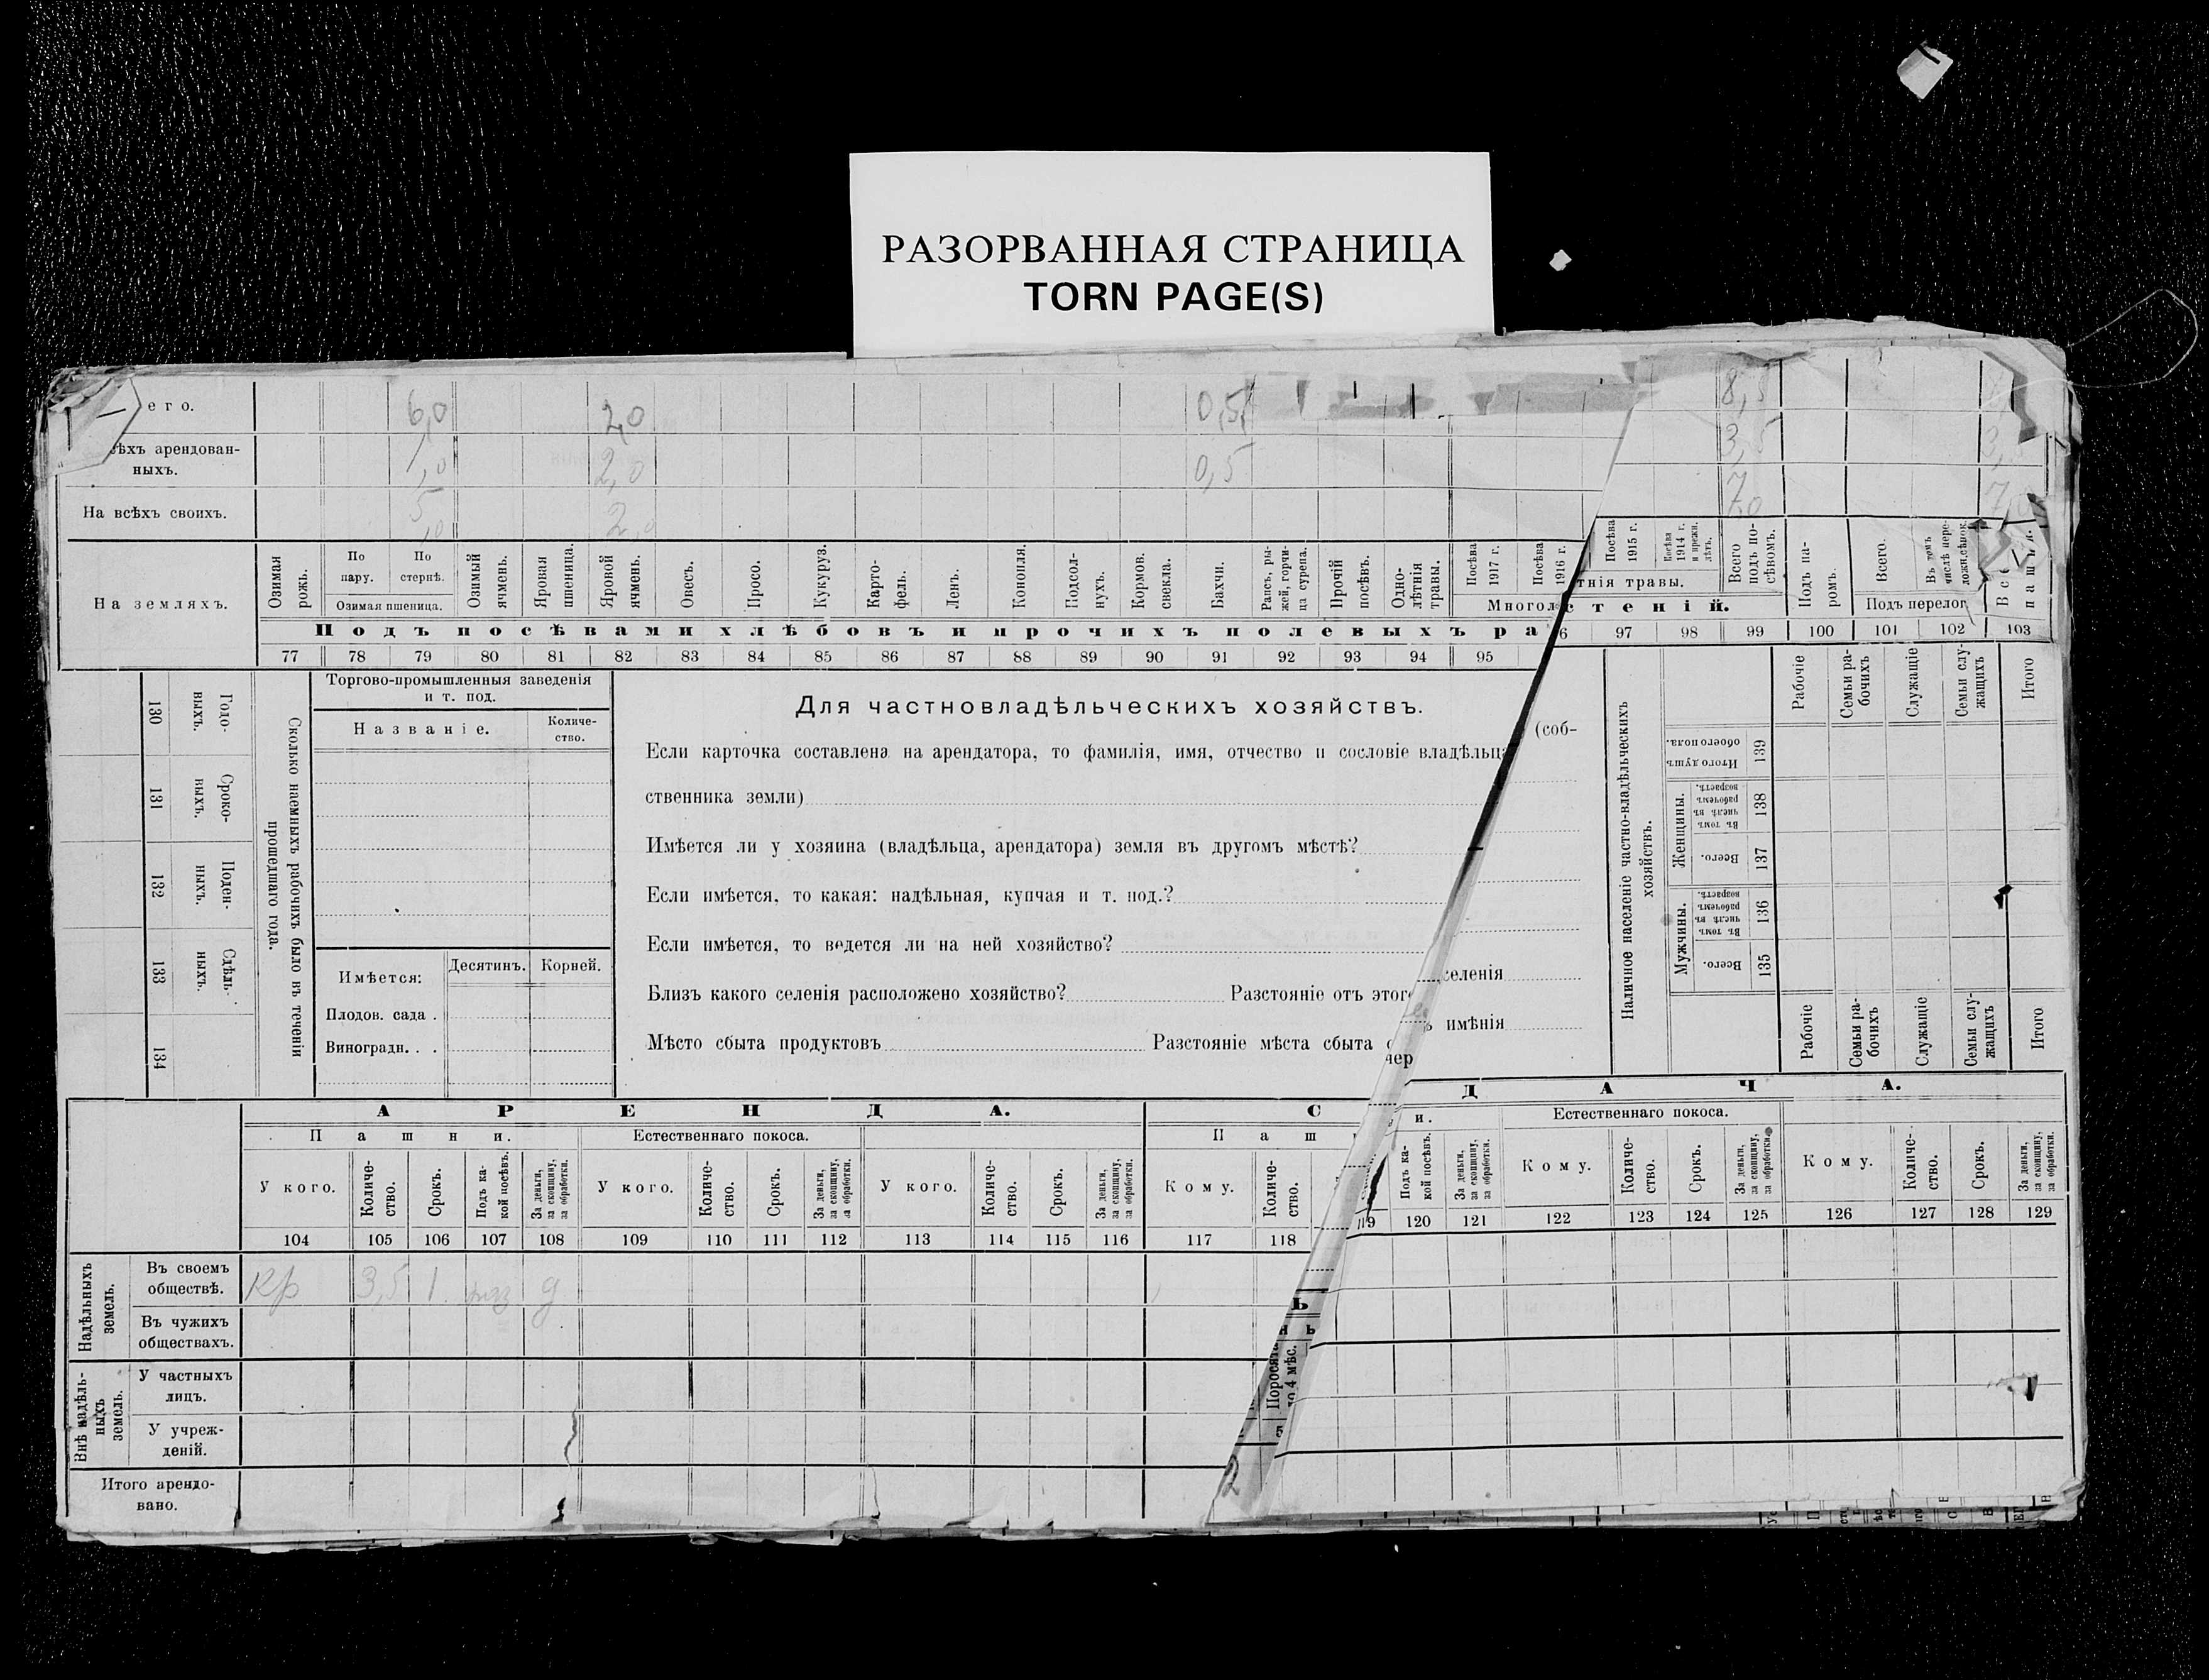 РАЗОРВАННАЯ СТРАНИЦА
TORN PAGE(S)
его. 6,0 2,0 0,5 8,5
ѣхъ арендован-
ныхъ. 1,0 2,0 0,5 3,5 3,
На всѣхъ своихъ. 5,0 2,0 7,0 7,0
На земляхъ.
Озимая рожь.
По пару.
По стернѣ.
Озимая пшеница.
Озимый ячмень.
Яровая пшеница.
Яровой ячмень.
Овесъ.
Просо.
Кукуруз.
Карто-
фель.
Ленъ.
Конопля.
Подсол-
нухъ.
Кормов. свекла.
Бахчи.
Рапсъ, ры-
жей, горчи-
ца сурепа.
Прочій посѣвъ.
Одно-
лѣтнія травы.
Посѣва 1917 г.
Посѣва 1916 г.
Посѣва 1915 г.
Посѣва 1914 г. и прежн. лѣтъ.
Многол
тнія травы.
Всего подъ по-
сѣвомъ.
Подъ па-
ромъ.
Всего.
Въ томъ числѣ пере-
ложн. сѣнок.
Подъ перелог
Подъ посѣвами хлѣбовъ и прочихъ полевыхъ ра
стеній.
77 78 79 80 81 82 83 84 85 86 87 88 89 90 91 92 93 94 95 6 97 98 99 100 101 102 103
130 Годо-
выхъ.
131 Сроко-
ныхъ.
132 Поден-
ныхъ.
133 Сдѣль-
ныхъ.
134
Сколько наемныхъ рабочихъ было въ теченіи
прошедшаго года.
Торгово-промышленныя заведенія
и т. под.
Названіе.
Количе-
ство.
Имѣется:
Десятинъ. Корней.
Плодов. сада .
Виноградн. . .
Для частновладѣльческихъ хозяйствъ.
Если карточка составлена на арендатора, то фамилія, имя, отчество и сословіе владѣльца (соб-
ственника земли)
Имѣется ли у хозяина (владѣльца, арендатора) земля въ другомъ мѣстѣ?
Если имѣется, то какая: надѣльная, купчая и т. под.?
Если имѣется, то ведется ли на ней хозяйство?
Близъ какого селенія расположено хозяйство? Разстояніе отъ этог селенія
Мѣсто сбыта продуктовъ Разстояніе мѣста сбыта имѣнія
Наличное населеніе частно-владѣльческихъ
хозяйствъ.
Рабочіе
Семьи ра-
бочихъ
Служащіе
Семьи слу-
жащихъ
Итого
Итого душъ обоего пола. 139
Женщины.
Въ томъ числѣ въ рабочемъ возрастѣ. 138
Всего. 137
Мужчины.
Въ томъ числѣ въ рабочемъ возрастѣ. 136
Всего. 135
Рабочіе
Семьи ра-
бочихъ
Служащіе
Семьи слу-
жащихъ
Итого
АРЕНДА. С ДАЧА.
Пашни. Естественнаго покоса. Паш и. Естественнаго покоса.
У кого.
Количе-
ство.
Срокъ.
Подъ ка-
кой посѣвъ.
За деньги,
за скопщину,
за обработки.
У кого.
Количе-
ство.
Срокъ.
За деньги,
за скопщину,
за обработки.
У кого.
Количе-
ство.
Срокъ.
За деньги,
за скопщину,
за обработки.
Кому.
Количе-
ство.
Подъ ка-
кой посѣвъ.
За деньги,
за скопщину,
за обработки.
Кому.
Количе-
ство.
Срокъ.
За деньги,
за скопщину,
за обработки.
Кому.
Количе-
ство.
Срокъ.
За деньги,
за скопщину,
за обработки.
104 105 106 107 108 109 110 111 112 113 114 115 116 117 118 119 120 121 122 123 124 125 126 127 128 129
Надѣльныхъ
земель.
Въ своемъ
обществѣ. кр 3,5 1 д
Въ чужихъ
обществахъ.
Внѣ надѣль-
ныхъ
земель.
У частныхъ
лицъ.
У учреж-
деній.
Итого арендо-
вано.
Поросята
до 4 мѣс.
2